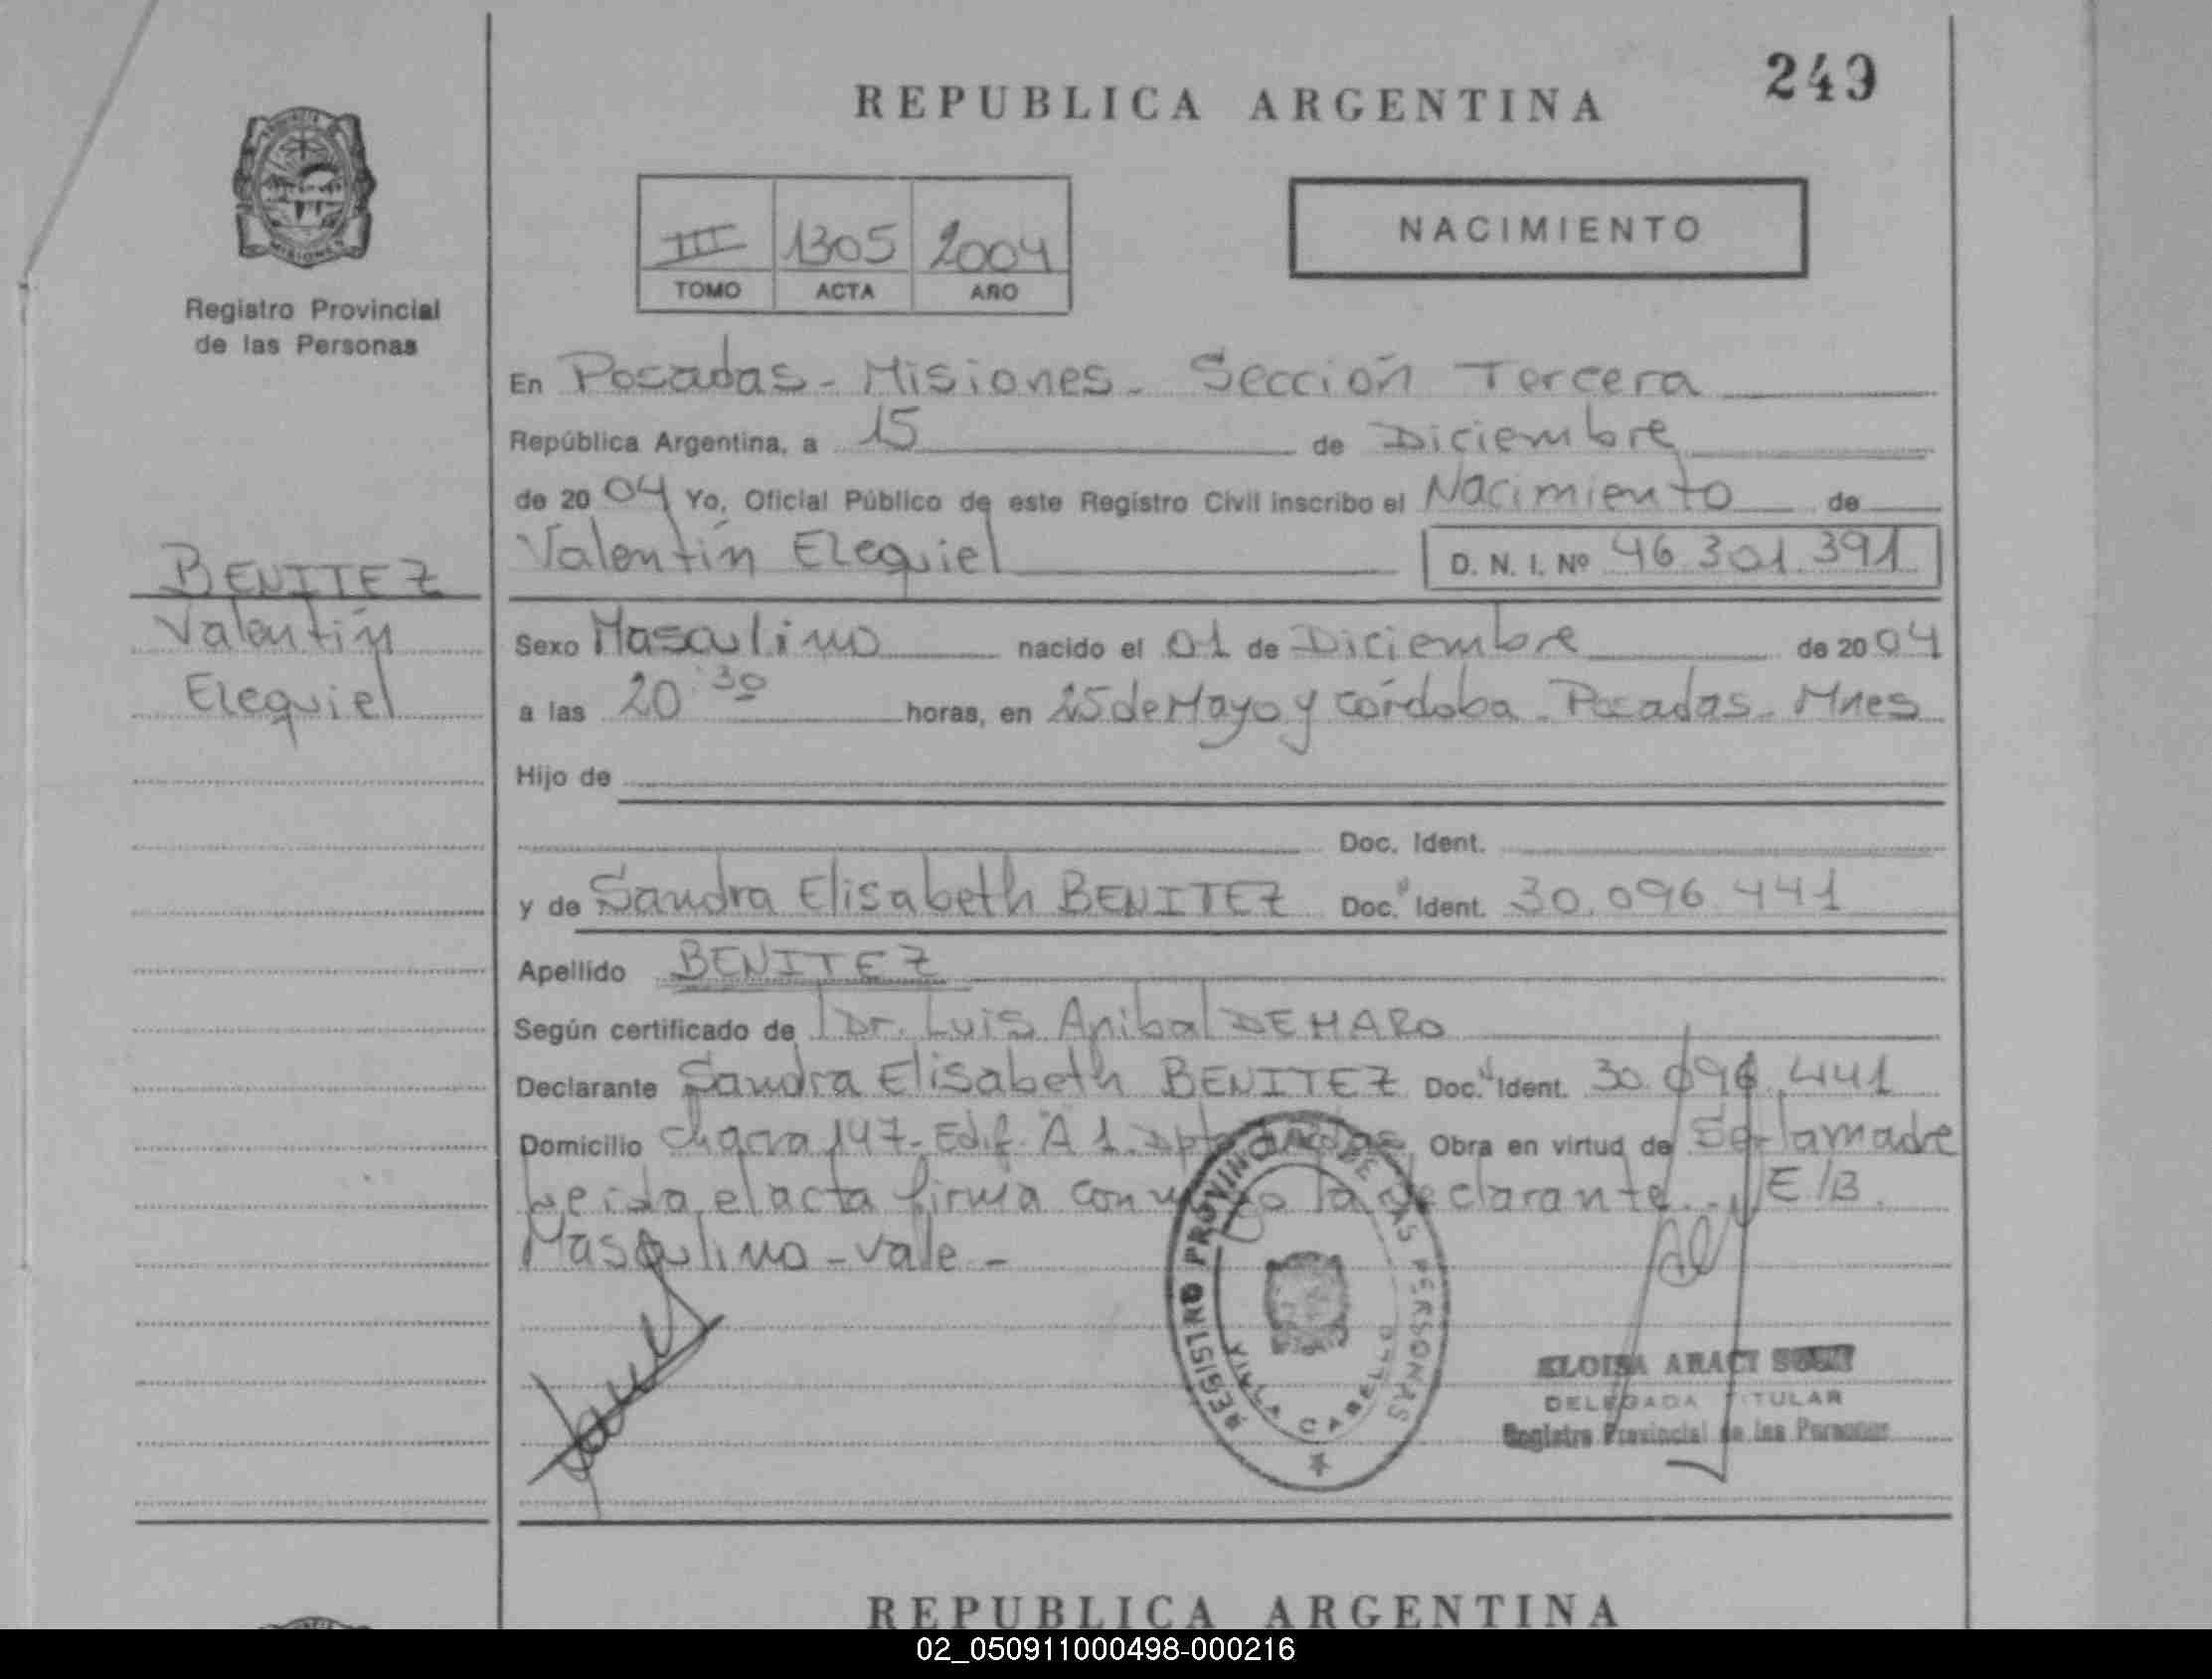 249
REPUBLICA ARGENTINA
NACIMIENTO
III 1305 2004
TOMO ACTA AÑO
Registro Provincial
de las Personas
En Posadas - Misiones - Sección Tercera
República Argentina, a 15 de Diciembre
de 2004 Yo, Oficial Público de este Registro Civil inscribo el Nacimiento de
Valentín Ezequiel D. N. I. Nº 46.301.391
BENITEZ
Valentín
Ezequiel
Sexo Masculino nacido el 01 de Diciembre de 2004
a las 20:30 horas, en 25 de Mayo y Córdoba - Posadas - Mnes
Hijo de
Doc. Ident.
y de Sandra Elisabeth BENITEZ Doc. Ident. 30.096.441
Apellido BENITEZ
Según certificado de Dr. Luis Anibal DEMARO
Declarante Sandra Elisabeth BENITEZ Doc. Ident. 30.096.441
Domicilio Chacra 147 - Edif. A 1 - Dpto Obra en virtud de Ser la madre
Leida el acta firma conmigo la declarante - E/B.
Masculino - vale -
REGISTRO PROVINCIAL DE LAS PERSONAS
VILLA CABELLO
ELOISA ARACI
DELEGADA TITULAR
Registro Provincial de las Personas
REPUBLICA ARGENTINA
02_050911000498-000216